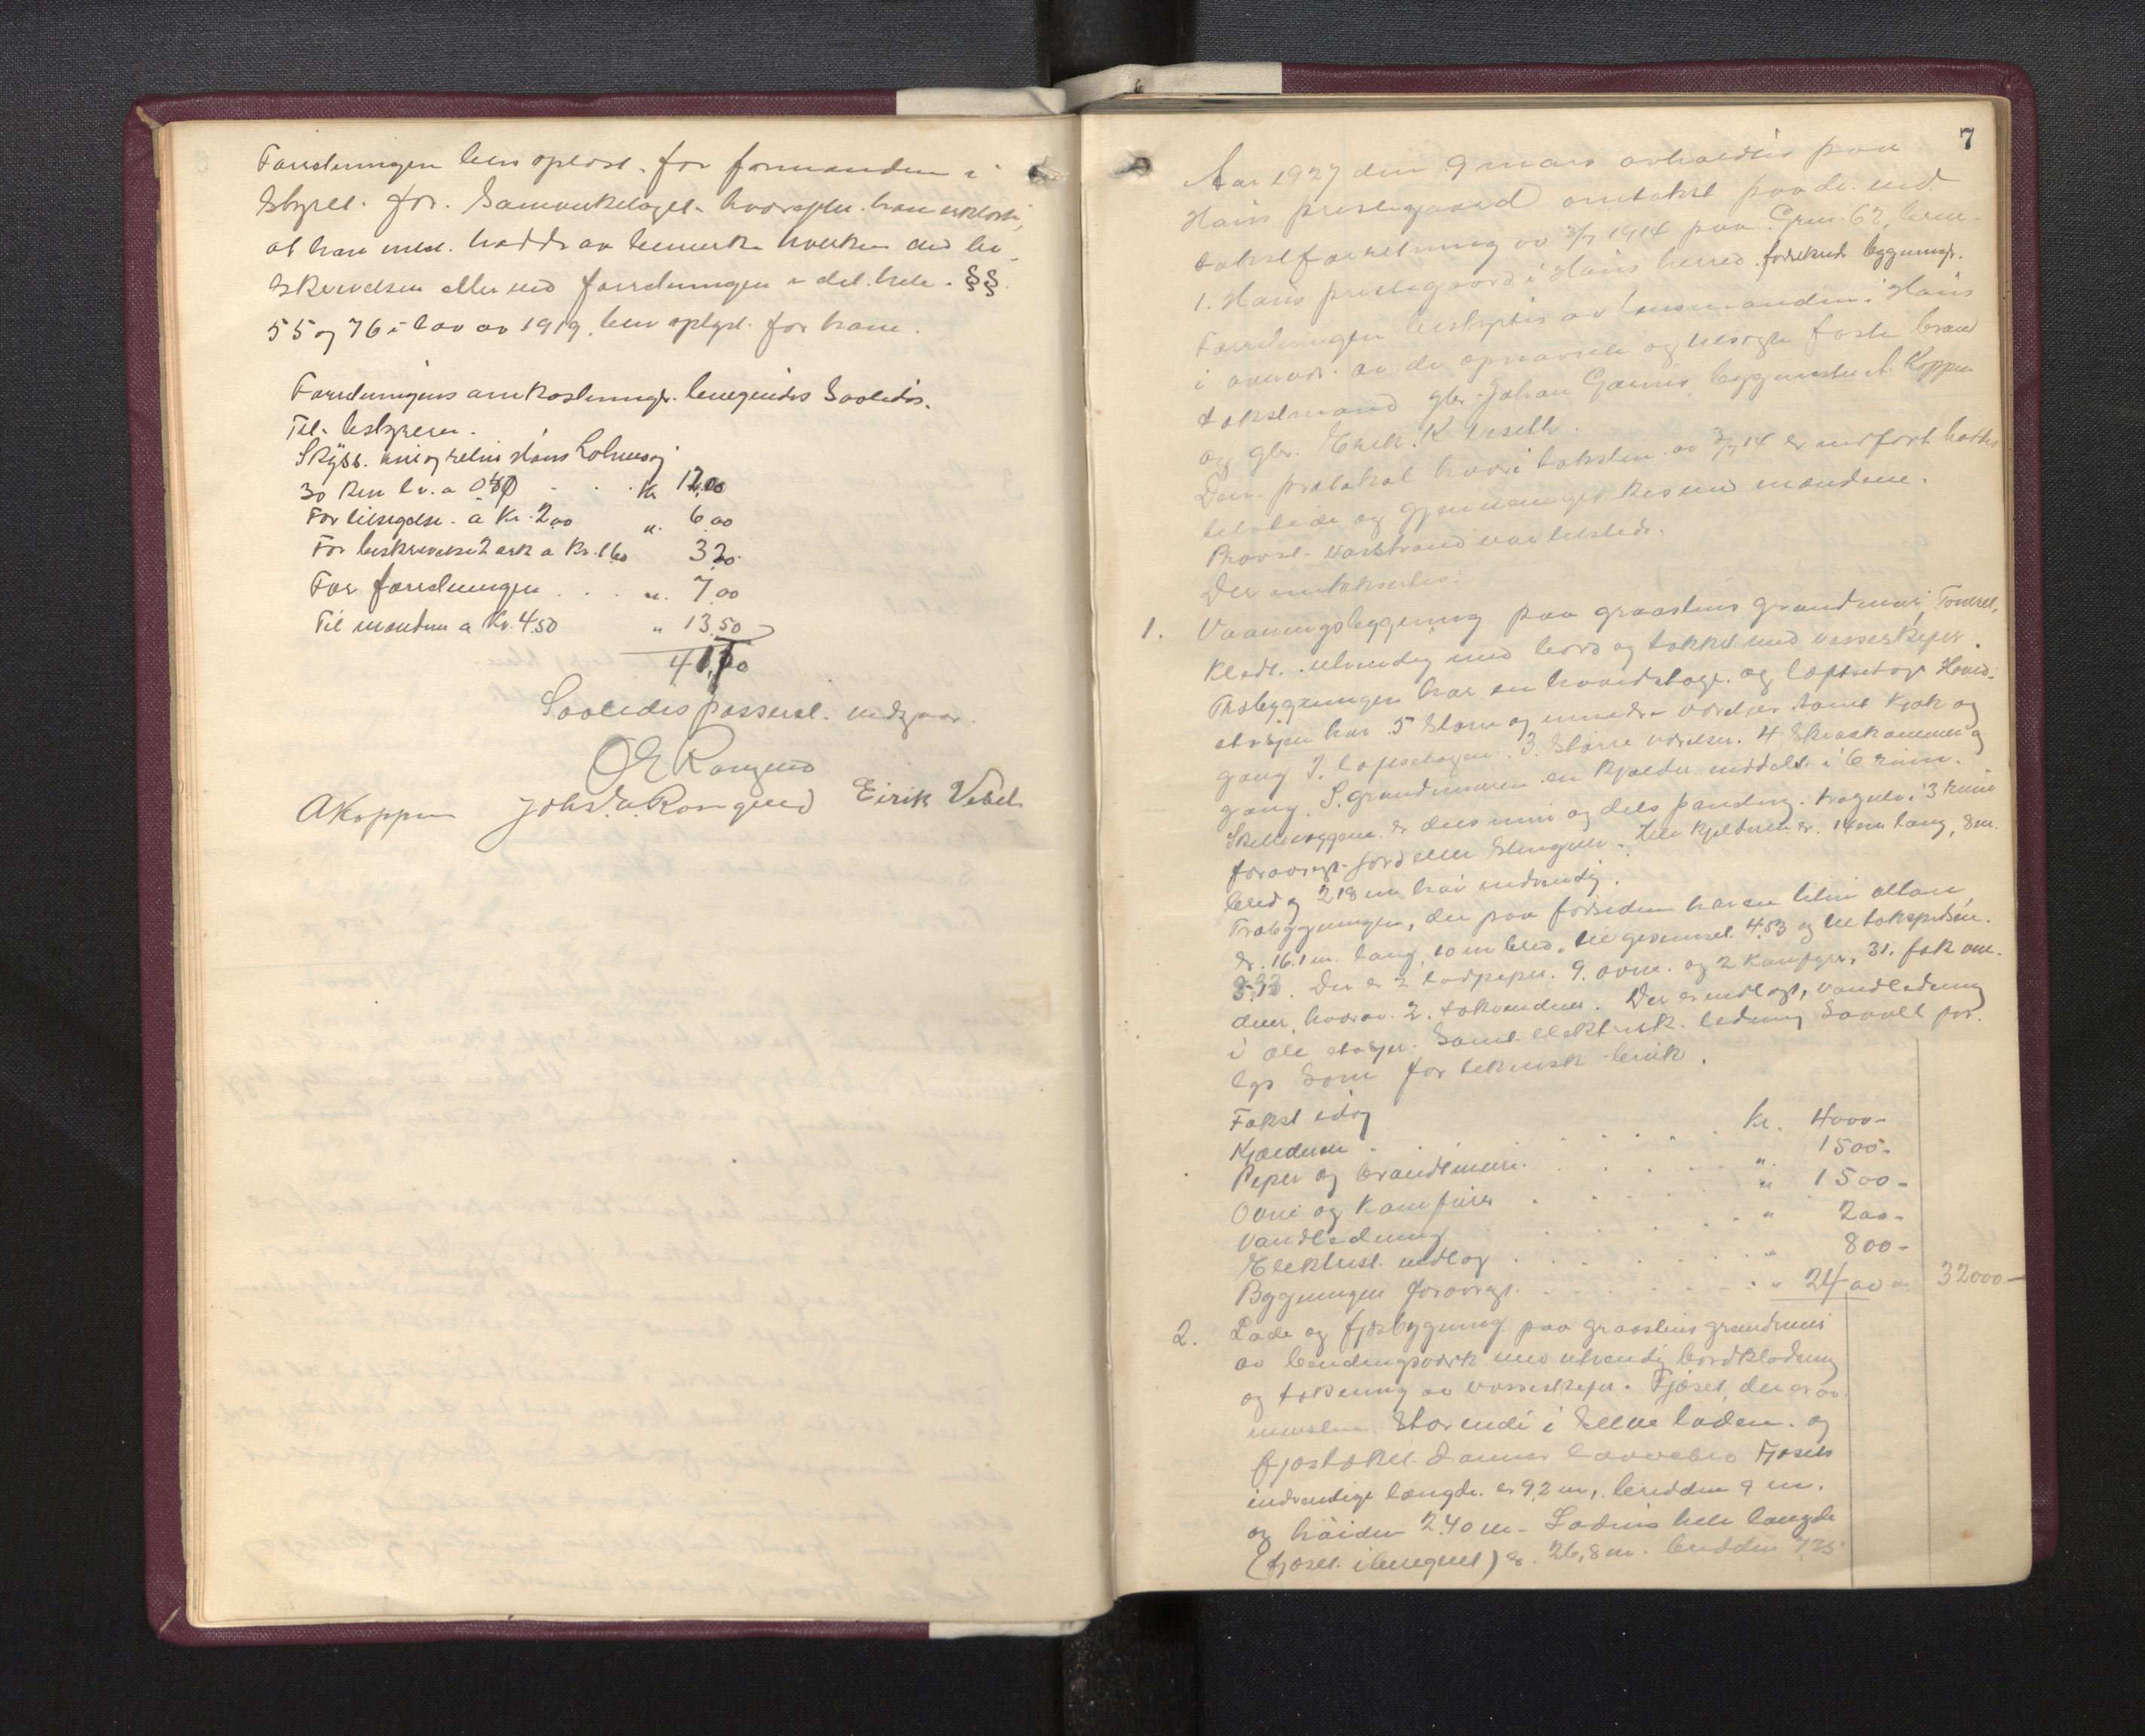 Forretningen blev oplæst for formanden i
styret for Samvirkelaget hvorefter han erklærte,
at han intet hadde at bemerke hverken ved be-
skrivelsen eller ved forretningen i det hele. §§
55 og 76 i lov av 1919 blev oplyst for ham.
Forretningens omkostninger beregnedes saaledes.
Til bestyreren.
Skyss
30 km l.v. a 0,40 . . . Kr 12,00
For tilsigelse a Kr. 2,00 " 6,00
For beskrivelse 2 ark a Kr. 1,60 3,20
For forretningen . . . " 7,00
Til mændene a Kr. 4,50 " 13,50
41,70
Saaledes passeret vidner
AKoppen Eirik Veseth
7
Aar 1927 den 9 mars avholdtes paa
Haus prestegaard omtakst paa de ved
takstforretning av 3/7 1914 paa Grnr. 62, brnr.
1. Haus prestegaard i Haus herred forsikrede bygninger.
Forretningen bestyrtes av lensmanden i Haus
i overvær av de opnævnte og tilsagte faste brand
takstmænd gbr. Johan Garnes, byggmester A. Koppen
og gbr. Eirik K Veseth.
Den protokol hvori taksten av 3/7 14 er indført hadde
tilstede og gjennemgikkes med mændene.
Provst var tilstede.
Der omtaksertes:
1. Vaaningsbygning paa graastens grundmur, Tømret,
klædt utvendig med bord og tækket med vasseskifer.
Træbygningen har en hovedetage og loftsetage. Hoved-
etasjen har 5 større og mindre værelser samt kjøk og
gang. I loftsetagen 3 større værelser. 4 skraakammer og
gang. I grundmuren en kjælder inddelt i 6 rum.
Skilleveggene er dels mur og dels panding. trægulv i 3 rum
forøvrigt jord eller stengulv. Hele kjelderen er 14 m lang, 8 m
bred og 2,18 m høi indvendig.
Træbygningen, der paa forsiden har en liten altan
er 16.1 m. lang, 10 m bred, til gesimset 4.53 og til takspidsen
8.33. Der er 2 rødpiper. 9 ovne og 2 kamfyr, 31 fak vin-
duer, hvorav 2 takvinduer. Der er indlagt, vandledning
i alle etasjer. Samt elektrisk ledning saavel for
lys som for teknisk bruk.
Takst idag
Kjælderen . . . . . Kr. 4000-
Piper og brandmure . . . . " 1500-
Ovne og kamfurer . . . . " 1500-
Vandledning . . . . " 200-
Elektrisk indlæg . . . . " 800-
Bygningen forøvrigt . . . . " 24000- 32000-
2. Lade og fjøsbygning paa graastens grundmur
av bindingsverk med utvendig bordklædning
og tækning av vasseskifer. Fjøset, der er av
murstein staar inde i selve laden og
fjøstaket danner laavebro. Fjøsets
indvendige længde er 9,2 m, bredden 9 m.
og høiden 2.40 m. Ladens hele længde
(fjøset iberegnet) er 26,8 m. bredden 7,35